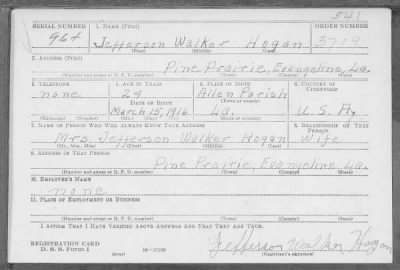 541
SERIAL NUMBER 1. NAME (Print) ORDER NUMBER
964 Jefferson Walker Hogan 3719
(First) (Middle) (Last)
2. ADDRESS (Print)
Pine Prairie, Evangeline, La.
(Number and street or R. F. D. number) (Town) (County) (State)
3. TELEPHONE 4. AGE IN YEARS 5. PLACE OF BIRTH 6. COUNTRY OF CITIZENSHIP
none 24 Allen Parish
DATE OF BIRTH (Town or county)
March 15, 1916 La. U. S. A.
(Exchange) (Number) (Mo.) (Day) (Yr.) (State or country)
7. NAME OF PERSON WHO WILL ALWAYS KNOW YOUR ADDRESS 8. RELATIONSHIP OF THAT PERSON
Mrs. Jefferson Walker Hogan Wife
(Mr., Mrs., Miss) (First) (Middle) (Last)
9. ADDRESS OF THAT PERSON
Pine Prairie, Evangeline, La.
(Number and street or R. F. D. number) (Town) (County) (State)
10. EMPLOYER'S NAME
none
11. PLACE OF EMPLOYMENT OR BUSINESS
(Number and street or R. F. D. number) (Town) (County) (State)
I AFFIRM THAT I HAVE VERIFIED ABOVE ANSWERS AND THAT THEY ARE TRUE.
REGISTRATION CARD
D. S. S. Form 1 (over) 16—17105 Jefferson Walker Hogan
(Registrant's signature)